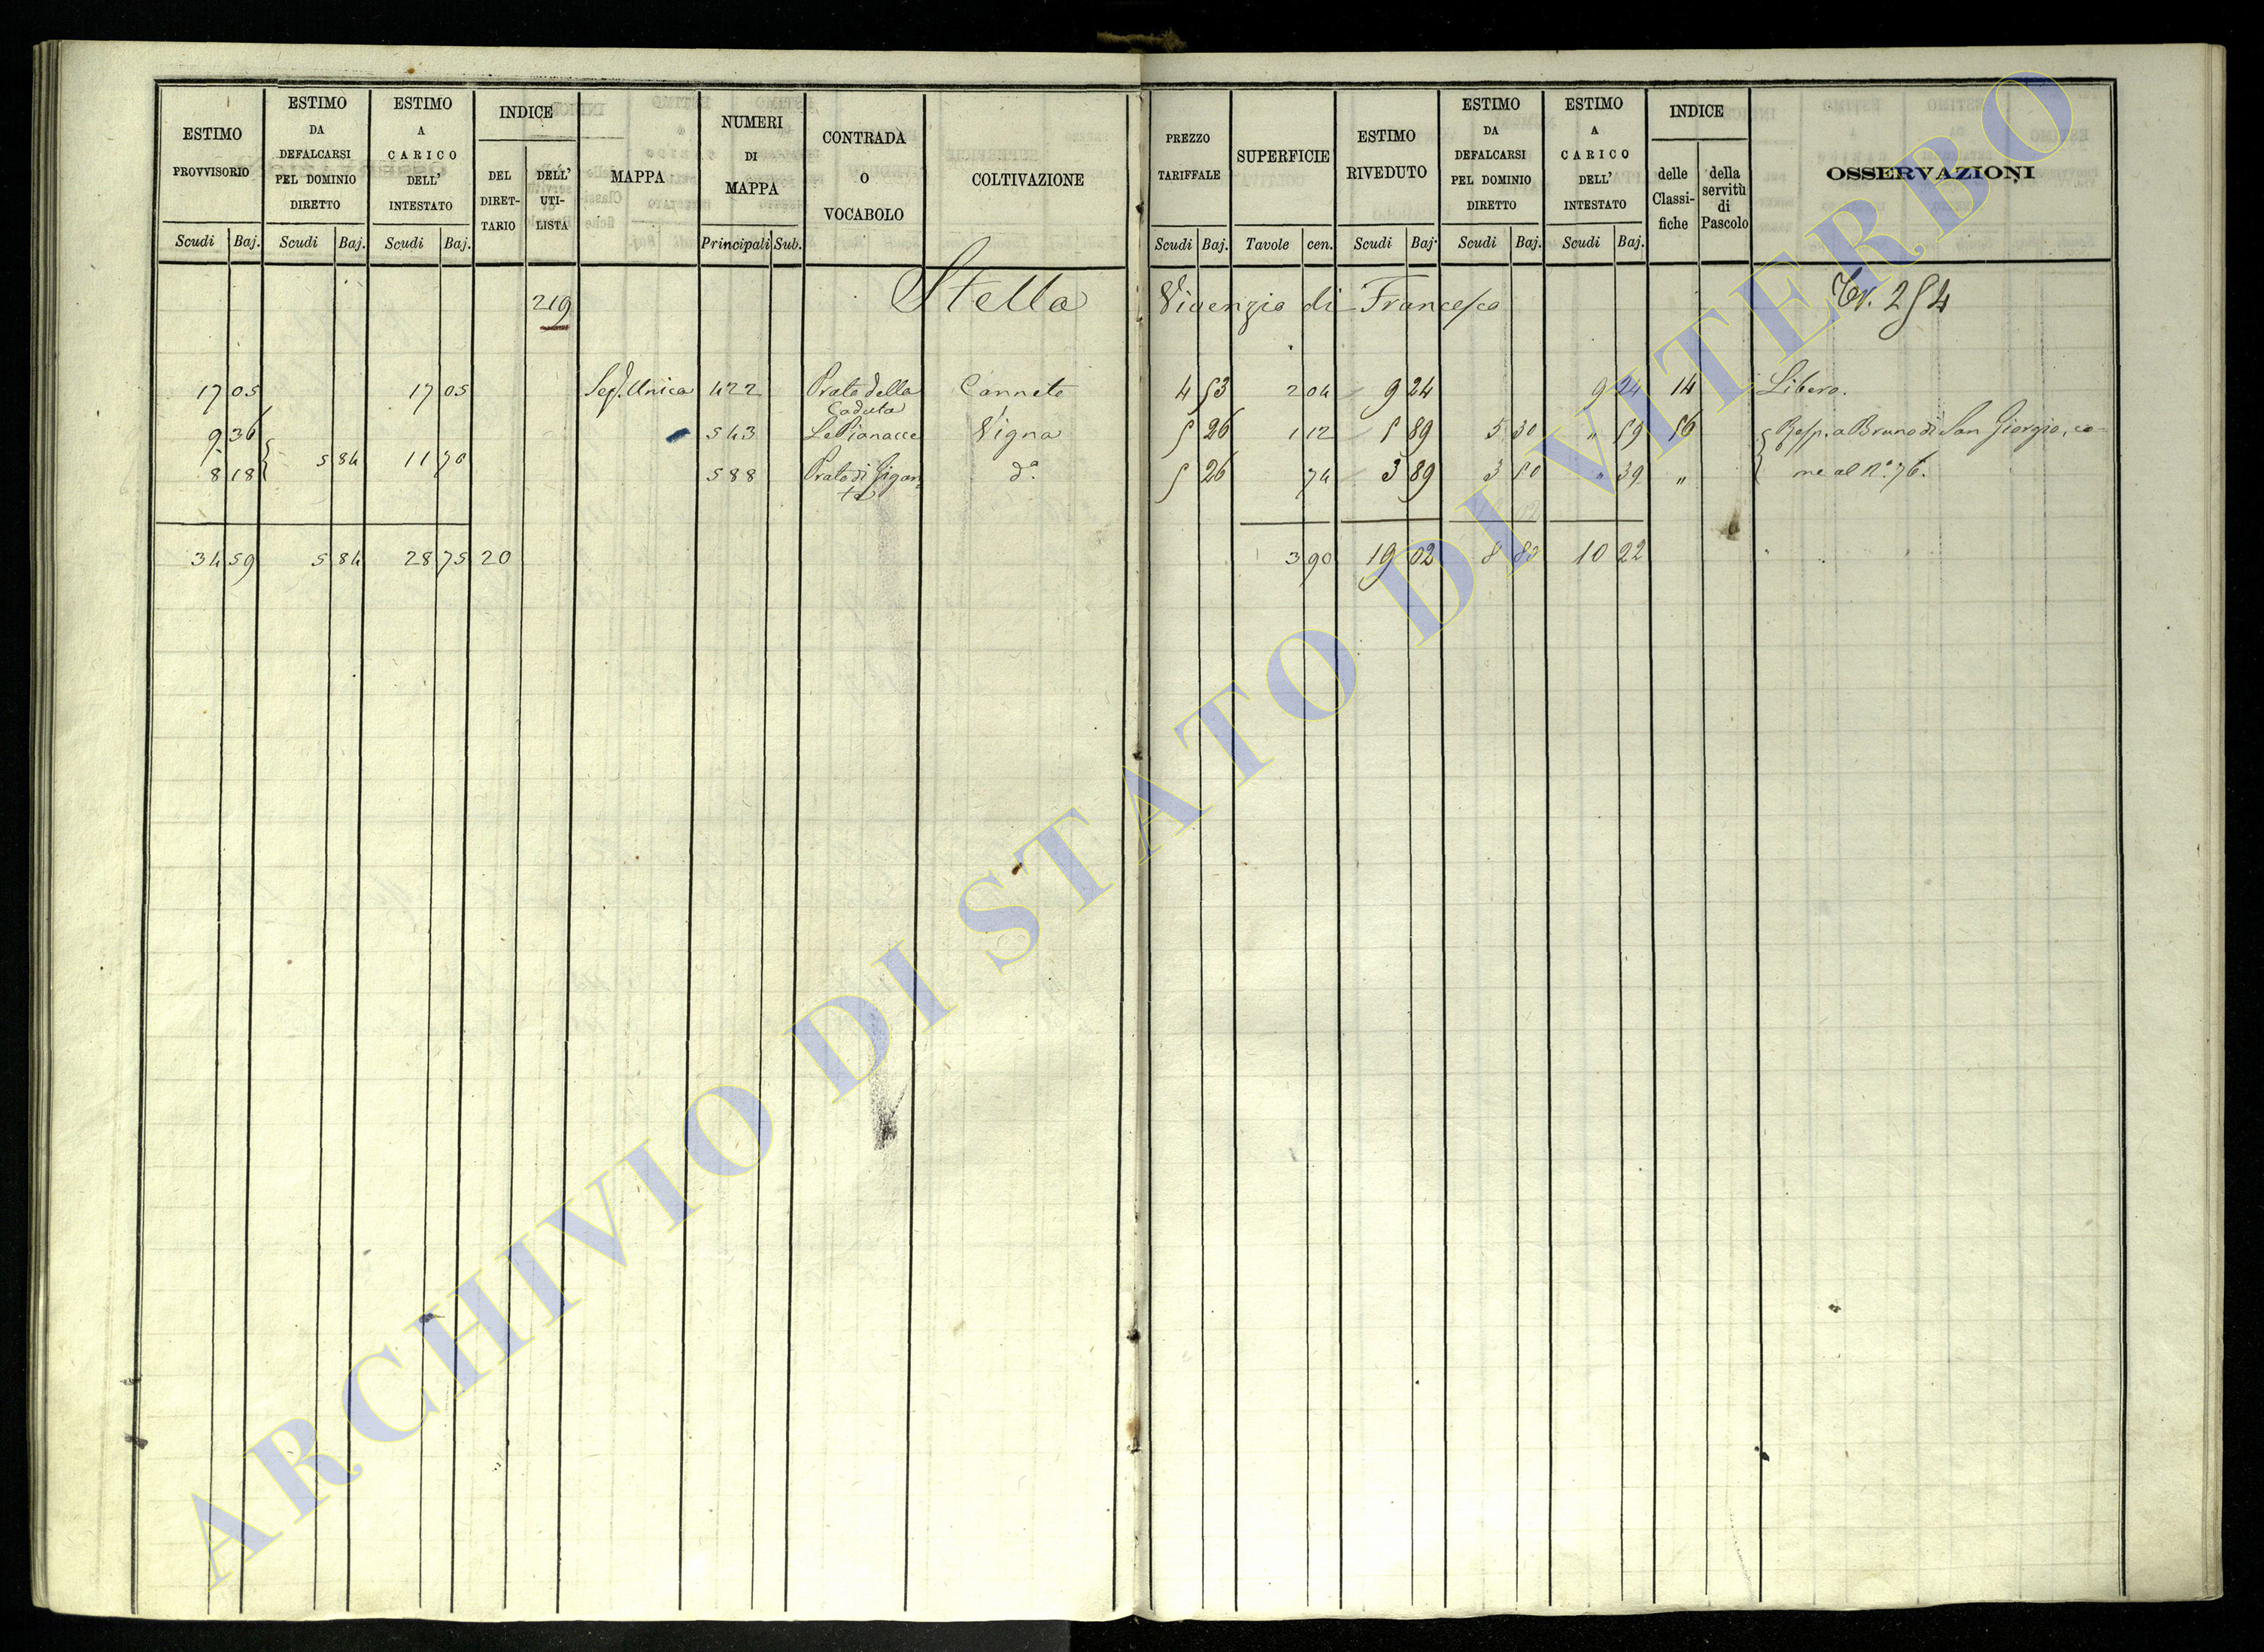 ESTIMO PROVVISORIO Scudi Baj.
ESTIMO DA DEFALCARSI PEL DOMINIO DIRETTO Scudi Baj.
ESTIMO A CARICO DELL' INTESTATO Scudi Baj.
INDICE DEL DIRETTARIO DELL' UTILISTA
MAPPA
NUMERI DI MAPPA Principali Sub.
CONTRADA O VOCABOLO
COLTIVAZIONE
PREZZO TARIFFALE Scudi Baj.
SUPERFICIE Tavole cen.
ESTIMO RIVEDUTO Scudi Baj.
ESTIMO DA DEFALCARSI PEL DOMINIO DIRETTO Scudi Baj.
ESTIMO A CARICO DELL' INTESTATO Scudi Baj.
INDICE delle Classifiche della servitù di Pascolo
OSSERVAZIONI
219 Stella Vicenzio di Francesco 254
17 05 17 05 Sez. Unica 422 Prato della Caduta Canneto 4 53 2 04 9 24 9 24 14 Libero.
9 36 543 Le Pianacce Vigna 5 26 1 12 5 89 5 30 " 59 56 Resp. a Bruno di San Giorgio, co-
5 84 11 70
8 18 588 Prato di Gigan-ta d.a 5 26 74 3 89 3 50 " 39 " me al N.o 76.
34 59 5 84 28 75 20 3 90 19 02 8 80 10 22
ARCHIVIO DI STATO DI VITERBO